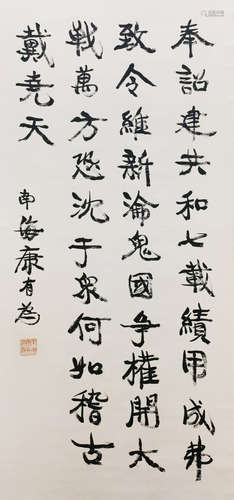 奉詔建共和七載績用成弗
致令維新淪鬼國爭權開大
戰萬方恐沈于泉何如稽古
戴堯天
南海康有為